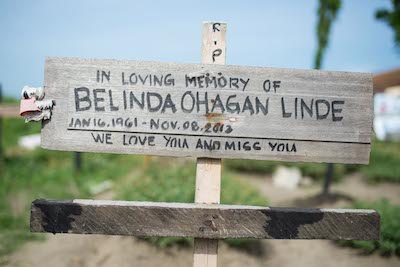 R.I.P
IN LOVING MEMORY OF
BELINDA OHAGAN LINDE
JAN 16, 1961 - NOV. 08. 2013
WE LOVE YOU AND MISS YOU